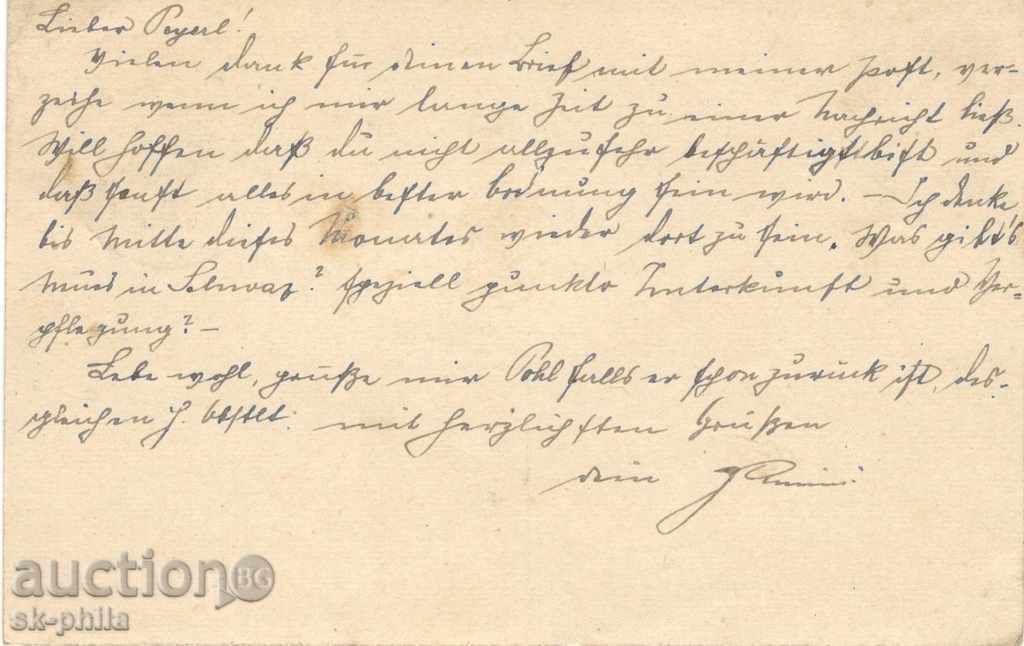 Lieber Peyerl!
Vielen dank für deinen Brief mit meiner Post, ver-
zeihe wenn ich mir lange Zeit zu einer Nachricht ließ.
Will hoffen daß du nicht allzusehr beschäftigt bist und
daß sonst alles in bester Ordnung sein wird. – Ich denke
bis Mitte dieses Monates wieder dort zu sein. Was gibt's
neues in ? speziell punkto Unterkunft und Ver-
pflegung? –
Lebe wohl, grüße mir Pohl falls er schon zurück ist, des-
gleichen H. 
mit herzlichsten Grüßen
dein
auction BG
sk-phila